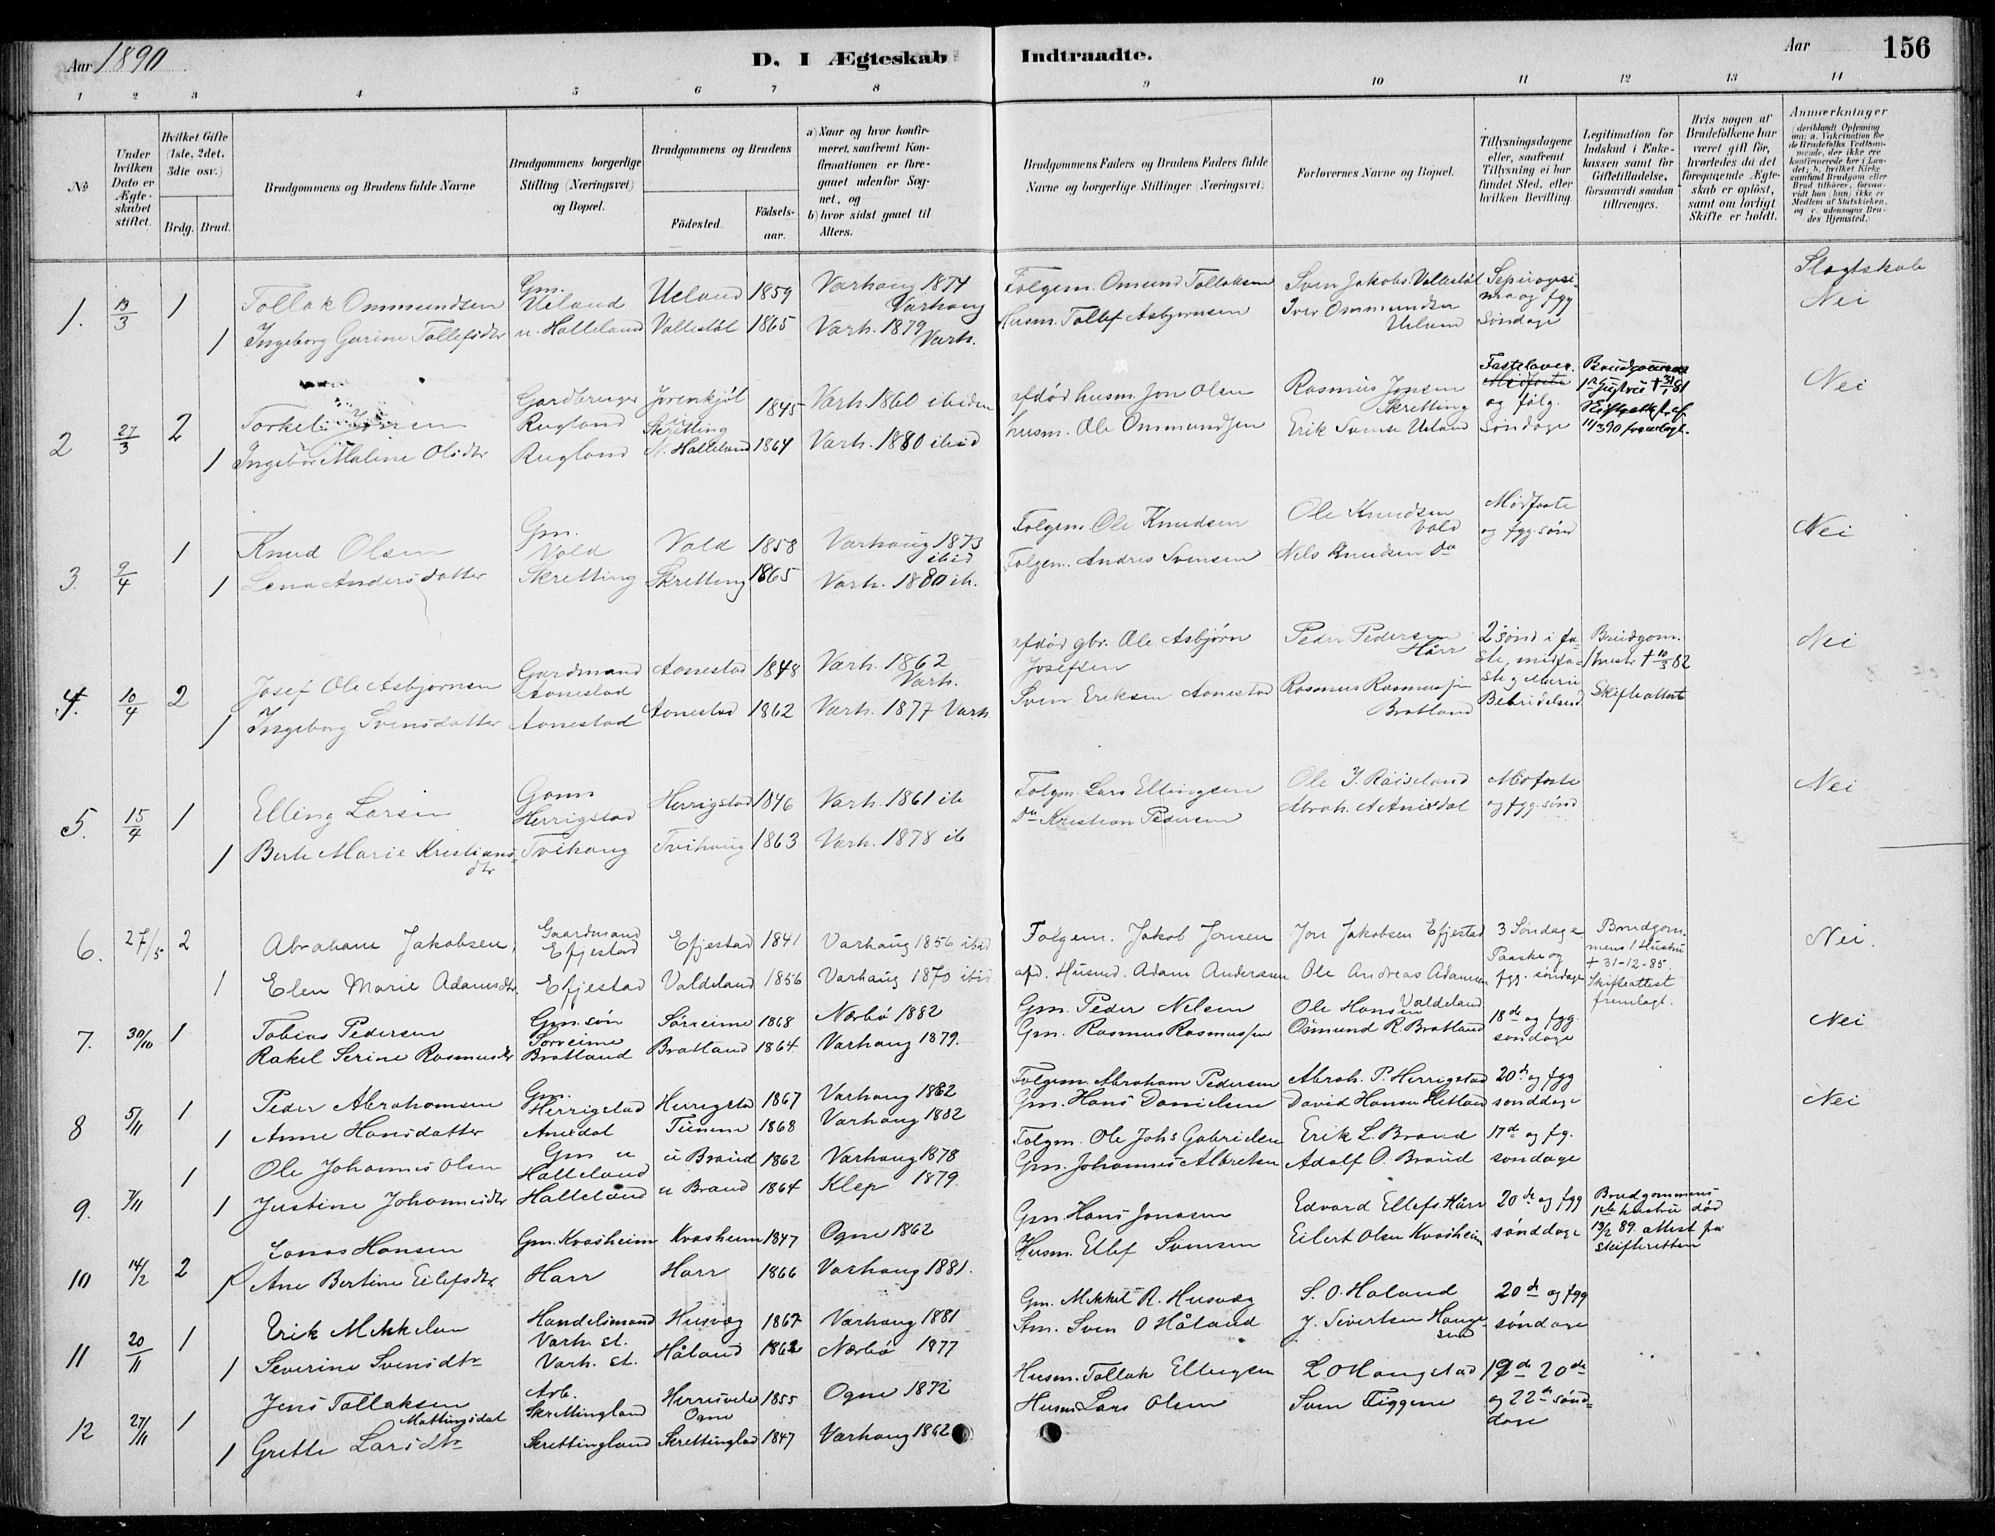 Aar 1890
D. I Ægteskab Indtraadte.
Aar
156
1 2 3 4 5 6 7 8 9 10 11 12 13 14
No
Under hvilken Dato er Ægteskabet stiftet.
Hvilket Gifte (1ste, 2det, 3die osv.)
Brdg. Brud.
Brudgommens og Brudens fulde Navne
Brudgommens borgerlige Stilling (Næringsvei) og Bopæl.
Brudgommens og Brudens
Födested. Födsels-aar.
a) Naar og hvor konfirmeret, saafremt Konfirmationen er foregaaet udenfor Sognet, og
b) hvor sidst gaaet til Alters.
Brudgommens Faders og Brudens Faders fulde Navne og borgerlige Stillinger (Næringsvei)
Forlovernes Navne og Bopæl.
Tillysningsdagene eller, saafremt Tillysning ei har fundet Sted, efter hvilken Bevilling.
Legitimation for Indskud i Enkekassen samt for Giftetilladelse, forsaavidt saadan tiltrænges.
Hvis nogen af Brudefolkene har været gift før, hvorledes da det foregaaende Ægteskab er opløst, samt om lovligt Skifte er holdt.
Anmærkninger
Slagtskab
1. 13/3 1 Tollak Ommundsen Gm. Ueland Ueland 1859 Varhaug 1874 Varhaug Folgem. Omund Tollaksen Sven Jakobs. Vallestöl Nei
1 Ingeborg Gurine Tollefsdtr u. Halleland Vallestöl 1865 Varh. 1879 Varh. Husm. Tollef Asbjørnsen Iver Ommundsen og fgg Søndage
2 27/3 2 Torkel Gardbruger Rugland Skretting 1845 Varh. 1860 ibidem afdød husm. Jon Olsen Rasmus Jonsen Skretting Fastelaven og følg. Søndage Nei
1 Ingebor Maline Olsdtr Rugland N. Halleland 1864 Varh. 1880 ibid husm. Ole Ommundsen Erik Ueland
3. 9/4 1 Knud Olsen Gm. Vold Vold 1858 Varhaug 1873 ibid Folgem. Ole Knudsen Ole Knudsen Vold Midfaste og fgg. sønd Nei
1 Lena Andersdatter Skretting Skretting 1865 Varh. 1880 ib. Folgem. Andres Svensen Nils Knudsen do
4. 10/4 2 Josef Ole Asbjørnsen Gardmand Aonestad Aonestad 1848 Varh. 1862 Varh. afdød gbr. Ole Asbjørn Josefsen Peder Pedersen Hårr 2 sønd i faste, midfaste og Maria Bebudelsesd Brudgom. hustr † 10/3 82 Skifteattest Nei
1 Ingeborg Svensdatter Aonestad Aonestad 1862 Varh. 1877 Varh Sven Eriksen Aonestad Rasmus Rasmussen Bratland
5. 15/4 1 Elling Larsen Herrigstad Herrigstad 1846 Varh. 1861 ib Folgm. Lars Ellingsen Ole Midfaste og fgg. sønd Nei
1 Berte Marie Kristiansdtr Tvihaug Tvihaug 1863 Varh. 1878 ib Do Kristian Pedersen
6. 27/5 2 Abraham Jakobsen, Gaardmand Efjestad Efjestad 1841 Varhaug 1856 ibid Folgem. Jakob Jonsen Jon Jakobsen Efjestad 3 Søndage Paaske og fgg. søndage Brudgommens 1 Hustru † 31-12-85. Skifteattest fremlagt. Nei.
1 Elen Marie Adamsdtr. Efjestad Valdeland 1856 Varhaug 1870 ibid afd. Husmd. Adam Andersen Ole Andreas Adamsen Valdeland
7. 30/10 1 Tobias Pedersen Gm. søn Sørreime Sørreime 1868 Nærbø 1882 Gm. Peder Nilsen Ole Hansen 18de og fgg. søndage Nei
Rakel Serine Rasmusdtr Bratland Bratland 1864 Varhaug 1879. Gm. Rasmus Rasmussen Osmund R Bratland
8 5/11 1 Peder Abrahamsen Gm. Herrigstad Herrigsta 1867 Varhaug 1882 Folgem. Abraham Pedersen Abrah. P. Herrigstad 20de og fgg sønddage Nei
1 Anne Hansdatter Anixdal 1868 Varhaug 1882 Gm. Hans Danielsen David Hansen Hetland
9. 7/11 1 Ole Johannes Olsen Gm u Halleland u Braud 1862 Varhaug 1878 Folgm. Ole Johs Gabrielsen Erik L. Braud 17de og fg. søndage
1 Justine Johannesdtr Halleland u Braud 1864 Klep 1879. Gm. Johannes Albretsen Adolf O. Braud
10 14/2 2 Jonas Hansen Gm. Kvasheim Kvasheim 1847 Ogne 1862 Gm. Hans Jonasen Edvard Ellefs. Hårr 20de og fgg sønddage Brudgommens 1ste hustru død 13/2 89. attest fra skifteretten
1 Ane Bertine Eilefsdtr Harr Harr 1866 Varhaug 1881. Husm. Ellef Svensen Eilert Olsen Kvasheim
11 20/11 1 Erik Mikkelsen Handelsmand Varh. st. Husvæg 1867 Varhaug 1881 Gm. Mikkel R. Husvæg S. O. Haland 20de og fgg søndage
1 Severine Svensdtr Varh. st. Håland 1862 Nærbø 1877 Gm. Sven O Håland J. Sivertsen
12 27/11 1 Jens Tollaksen Mattingsdal Arb. Skrettingland Ogne 1855 Ogne 1872 Husm. Tollak Ellingsen L O Haugstad 19de 20de og 22de sønddage
1 Grette Larsdtr Skrettingland Skrettinglad 1847 Varhaug 1862 Husm Lars Olsen Sven Tiggene